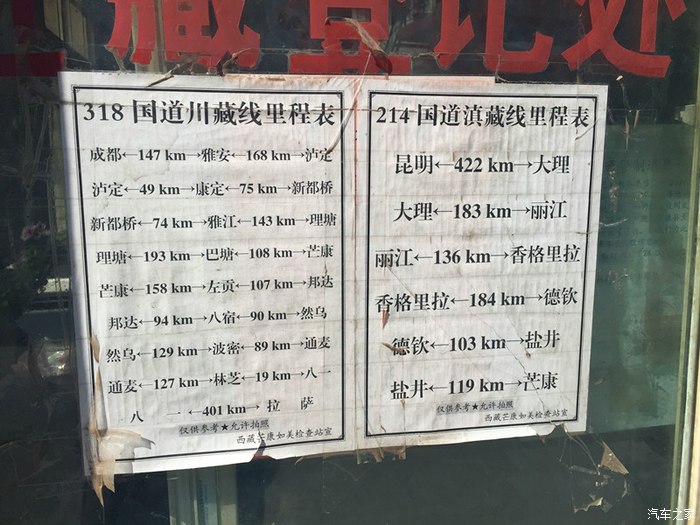 藏登记处
318 国道川藏线里程表
成都←147 km→雅安←168 km→泸定
泸定←49 km→康定←75 km→新都桥
新都桥←74 km→雅江←143 km→理塘
理塘←193 km→巴塘←108 km→芒康
芒康←158 km→左贡←107 km→邦达
邦达←94 km→八宿←90 km→然乌
然乌←129 km→波密←89 km→通麦
通麦←127 km→林芝←19 km→八一
八 一←401 km→拉 萨
仅供参考★允许拍照
西藏芒康如美检查站宣
214 国道滇藏线里程表
昆明←422 km→大理
大理←183 km→丽江
丽江←136 km→香格里拉
香格里拉←184 km→德钦
德钦←103 km→盐井
盐井←119 km→芒康
仅供参考★允许拍照
西藏芒康如美检查站宣
汽车之家